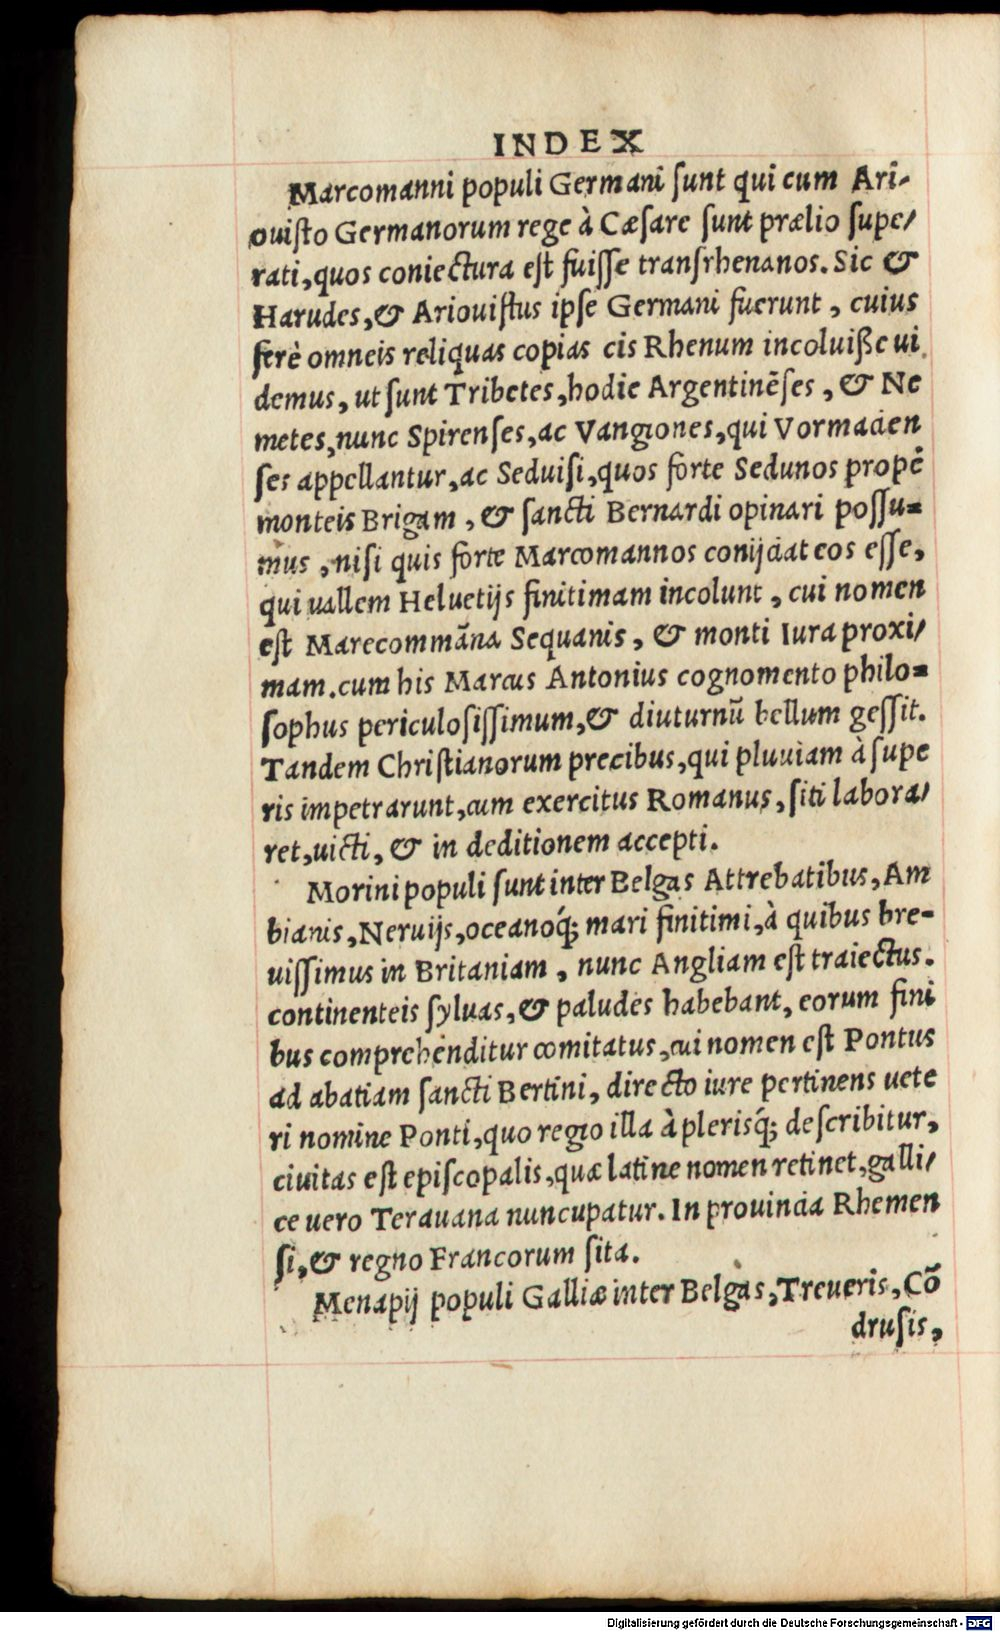 INDEX
Marcomanni populi Germani ſunt qui cum Ari-
ouiſto Germanorum rege à Cæſare ſunt prælio ſupe/
rati, quos coniectura eſt fuiſſe tranſrhenanos. Sic &
Harudes, & Ariouiſtus ipſe Germani fuerunt, cuius
ferè omneis reliquas copias cis Rhenum incoluiße ui
demus, ut ſunt Tribetes, hodie Argentinēſes, & Ne
metes, nunc Spirenſes, ac Vangiones, qui Vormacien
ſes appellantur, ac Seduiſi, quos forte Sedunos propè
monteis Brigam, & ſancti Bernardi opinari poſſu=
mus, niſi quis forte Marcomannos conijciat eos eſſe,
qui uallem Heluetijs finitimam incolunt, cui nomen
eſt Marecommāna Sequanis, & monti Iura proxi/
mam. cum his Marcus Antonius cognomento philo=
ſophus periculoſiſſimum, & diuturnū bellum geſſit.
Tandem Chriſtianorum precibus, qui pluuiam à ſupe
ris impetrarunt, cum exercitus Romanus, ſiti labora/
ret, uicti, & in deditionem accepti.
Morini populi ſunt inter Belgas Attrebatibus, Am
bianis, Neruijs, oceanoq́; mari finitimi, à quibus bre-
uiſſimus in Britaniam, nunc Angliam eſt traiectus.
continenteis ſyluas, & paludes habebant, eorum fini
bus comprehenditur comitatus, cui nomen eſt Pontus
ad abatiam ſancti Bertini, directo iure pertinens uete
ri nomine Ponti, quo regio illa à plerisq́; deſcribitur,
ciuitas eſt epiſcopalis, quæ latine nomen retinet, galli/
ce uero Terauana nuncupatur. In prouincia Rhemen
ſi, & regno Francorum ſita.
Menapij populi Galliæ inter Belgas, Treueris, Cō
druſis,
Digitalisierung gefördert durch die Deutsche Forschungsgemeinschaft - DFG